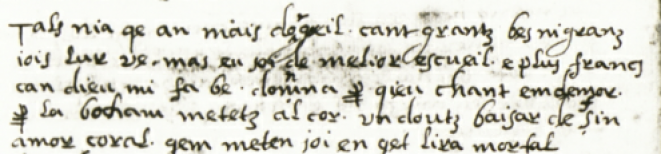 Tals nia qe an mais dorgueil. cant granz bes ni granz
iois lur ve. mas eu soi de meilor escueil. e plus francs
can dieu mi fa be. domna per qieu chant em demor.
per la bocham metetz al cor. un doutz baisar de fin
amor coral. qem meten ioi en get lira mortal